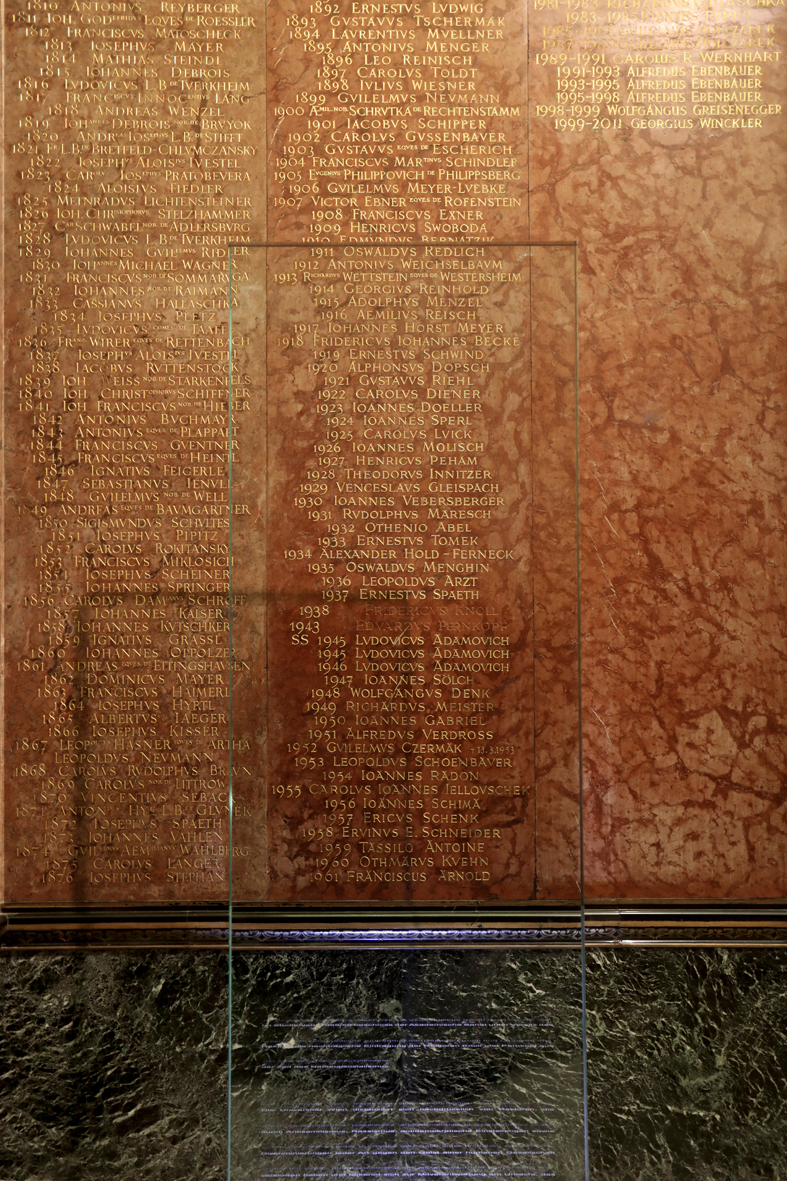 1810 ANTONIVS REYBERGER
1811 IOH. GODEFRIDUS EQVES DE ROESSLER
1812 FRANCISCVS MATOSCHECK
1813 IOSEPHVS MAYER
1814 MATHIAS STEINDL
1815 IOHANNES DEBROIS
1816 LVDOVICVS L.B. DE TVERKHEIM
1817 FRANCISCVS INNOCENTIVS LANG
1818 ANDREAS WENZEL
1819 IOHANNES DEBROIS NOB. DE BRVYOK
1820 ANDREAS IOSEPHVS L.B. DE STIFFT
1821 L.B. DE BRETFELD-CHLVMCZANSKY
1822 IOSEPHVS ALOISIVS IVESTEL
1823 IOSEPHVS PRATOBEVERA
1824 ALOISIVS FIEDLER
1825 MEINRADVS LICHTENSTEINER
1826 IOH. CHRISTOPHORVS STELZHAMMER
1827 SCHWABEL NOB. DE ADLERSBVRG
1828 LVDOVICVS L.B. DE TVERKHEIM
1829 IOHANNES GVILIELMVS RIDLER
1830 IOHANNES MICHAEL WAGNER
1831 FRANCISCVS NOB. DE SOMMARVGA
1832 IOHANNES NOB. DE RAIMANN
1833 CASSIANVS HALLASCHKA
1834 IOSEPHVS PLETZ
1835 LVDOVICVS COMES DE TAAFFE
1836 FRANC. WIRER EQVES DE RETTENBACH
1837 IOSEPHVS ALOISIVS IVESTEL
1838 IACOBVS RVTTENSTOCK
1839 IOH. WEISS NOB. DE STARKENFELS
1840 IOH. CHRISTOPHORVS SCHIFFNER
1841 IOH. FRANCISCVS NOB. DE HIEBER
1842 ANTONIVS BVCHMAYR
1843 ANTONIVS EQVES DE PLAPPART
1844 FRANCISCVS GVENTNER
1845 FRANCISCVS EQVES DE HEINTL
1846 IGNATIVS FEIGERLE
1847 SEBASTIANVS IENVLL
1848 GVILELMVS NOB. DE WELL
1849 ANDREAS EQVES DE BAVMGARTNER
1850 SIGISMVNDVS SCHVLTES
1851 IOSEPHVS PIPITZ
1852 CAROLVS ROKITANSKY
1853 FRANCISCVS MIKLOSICH
1854 IOSEPHVS SCHEINER
1855 IOHANNES SPRINGER
1856 CAROLVS DAM. NOB. SCHROFF
1857 IOHANNES KAISER
1858 IOHANNES KVTSCHKER
1859 IGNATIVS GRASSL
1860 IOHANNES OPPOLZER
1861 ANDREAS EQVES DE ETTINGSHAVSEN
1862 DOMINICVS MAYER
1863 FRANCISCVS HAIMERL
1864 IOSEPHVS HYRTL
1865 ALBERTVS IAEGER
1866 IOSEPHVS KISSER
1867 LEOPOLD. HASNER EQVES DE ARTHA
LEOPOLDVS NEVMANN
1868 CAROLVS RVDOLPHVS BRAVN
1869 CAROLVS NOB. DE LITTROW
1870 VINCENTIVS SEBACK
1871 ANTON. HYE L.B. GLVNEK
1872 IOSEPHVS SPAETH
1873 IOHANNES VAHLEN
1874 GVIL. AEM. WAHLBERG
1875 CAROLVS LANGER
1876 IOSEPHVS STEPHAN
1892 ERNESTVS LVDWIG
1893 GVSTAVVS TSCHERMAK
1894 LAVRENTIVS MVELLNER
1895 ANTONIVS MENGER
1896 LEO REINISCH
1897 CAROLVS TOLDT
1898 IVLIVS WIESNER
1899 GVILELMVS NEVMANN
1900 AEMIL. NOB. SCHRVTKA DE RECHTENSTAMM
1901 IACOBVS SCHIPPER
1902 CAROLVS GVSSENBAVER
1903 GVSTAVVS EQVES DE ESCHERICH
1904 FRANCISCVS MARTINVS SCHINDLER
1905 EVGENIVS PHILIPPOVICH DE PHILIPPSBERG
1906 GVILELMVS MEYER-LVEBKE
1907 VICTOR EBNER EQVES DE ROFENSTEIN
1908 FRANCISCVS EXNER
1909 HENRICVS SWOBODA
1910 EDMVNDVS BERNATZIK
1911 OSWALDVS REDLICH
1912 ANTONIVS WEICHSELBAVM
1913 RICHARDVS WETTSTEIN EQVES DE WESTERSHEIM
1914 GEORGIVS REINHOLD
1915 ADOLPHVS MENZEL
1916 AEMILIVS REISCH
1917 IOHANNES HORST MEYER
1918 FRIDERICVS IOHANNES BECKE
1919 ERNESTVS SCHWIND
1920 ALPHONSVS DOPSCH
1921 GVSTAVVS RIEHL
1922 CAROLVS DIENER
1923 IOANNES DOELLER
1924 IOANNES SPERL
1925 CAROLVS LVICK
1926 IOANNES MOLISCH
1927 HENRICVS PEHAM
1928 THEODORVS INNITZER
1929 VENCESLAVS GLEISPACH
1930 IOANNES VEBERSBERGER
1931 RVDOLPHVS MARESCH
1932 OTHENIO ABEL
1933 ERNESTVS TOMEK
1934 ALEXANDER HOLD-FERNECK
1935 OSWALDVS MENGHIN
1936 LEOPOLDVS ARZT
1937 ERNESTVS SPAETH
1938 FRIDERICVS KNOLL
1943 EDVARDVS PERNKOPF
SS 1945 LVDOVICVS ADAMOVICH
1945 LVDOVICVS ADAMOVICH
1946 LVDOVICVS ADAMOVICH
1947 IOANNES SÖLCH
1948 WOLFGANGVS DENK
1949 RICHARDVS MEISTER
1950 IOANNES GABRIEL
1951 ALFREDVS VERDROSS
1952 GVILELMVS CZERMAK +13.3.1953
1953 LEOPOLDVS SCHOENBAVER
1954 IOANNES RADON
1955 CAROLVS IOANNES IELLOVSCHEK
1956 IOANNES SCHIMA
1957 ERICVS SCHENK
1958 ERVINVS E. SCHNEIDER
1959 TASSILO ANTOINE
1960 OTHMARVS KVEHN
1961 FRANCISCVS ARNOLD
1989-1991 CAROLVS R. WERNHART
1991-1993 ALFREDUS EBENBAUER
1993-1995 ALFREDUS EBENBAUER
1995-1998 ALFREDUS EBENBAUER
1998-1999 WOLFGANGUS GREISENEGGER
1999-2011 GEORGIUS WINCKLER